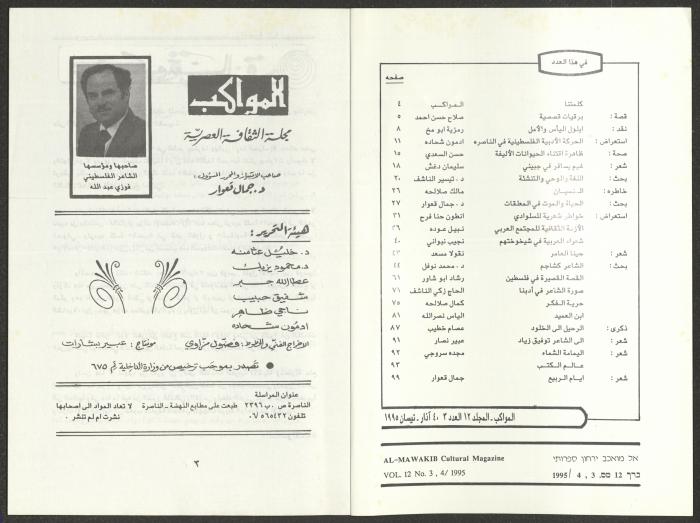 المواكب
مجلة الثقافة العصرية
صاحب الامتياز والمحرر المسؤول:
د. جمال قعوار
صاحبها ومؤسسها
الشاعر الفلسطيني
فوزي عبد الله
هيئة التحرير:
د. خليل عثامنه
د. محمود يزبك
عطاالله جبر
شفيق حبيب
ناجي ظاهر
ادمون شحاده
الاخراج الفني والخطوط: مونتاج: عبير بشارات
● تصدر بموجب ترخيص من وزارة الداخلية رقم ٦٧٥
عنوان المراسلة
الناصرة ص.ب ٢٣٩٦
تلفون ٠٦/٥٦٥٤٣٢
طبعت على مطابع النهضة - الناصرة
لا تعاد المواد الى اصحابها
نشرت ام لم تنشر
٣
في هذا العدد
صفحه
كلمتنا المواكب ٤
قصة: برقيات قصصية صلاح حسن احمد ٥
نقد: ايلول اليأس والأمل رمزية ابو مخ ٨
استعراض: الحركة الأدبية الفلسطينية في الناصره ادمون شحاده ١١
صحة: ظاهرة اقتناء الحيوانات الأليفة حسن السعدي ١٥
شعر: غيم يسافر في جبيني سليمان دغش ١٨
بحث: اللغة والوحي والتنشئة د. تيسير الناشف ٢٠
خاطره: النسيان مالك صلالحه ٢٦
بحث: الحياة والموت في المعلقات د. جمال قعوار ٢٧
استعراض: خواطر شعرية للسلوادي انطون حنا فرح ٣١
الأزمة الثقافية للمجتمع العربي نبيل عوده ٣٦
شعراء العربية في شيخوختهم نجيب نبواني ٤٠
شعر: حينا العامر نقولا مسعد ٤٣
بحث: الشاعر كشاجم د. محمد نوفل ٤٤
القصة القصيرة في فلسطين رشاد ابو شاور ٦١
صورة الشاعر في أدبنا الحاج زكي الناشف ٧١
حرية الفكر كمال صلالحه ٧٥
ابن العميد الياس نصرالله ٨١
ذكرى: الرحيل الى الخلود عصام خطيب ٨٧
شعر: الى الشاعر توفيق زياد عبير نصار ٩١
شعر: اليمامة الشماء مجده سروجي ٩٢
عالم الكتب ٩٣
شعر: ايام الربيع جمال قعوار ٩٩
المواكب - المجلد ١٢ العدد ٣ ، ٤ آذار - نيسان ١٩٩٥
AL-MAWAKIB Cultural Magazine
VOL. 12 No. 3 , 4/ 1995
אל מואכב ירחון ספרותי
כרך 12 מס. 3 , 4 /1995